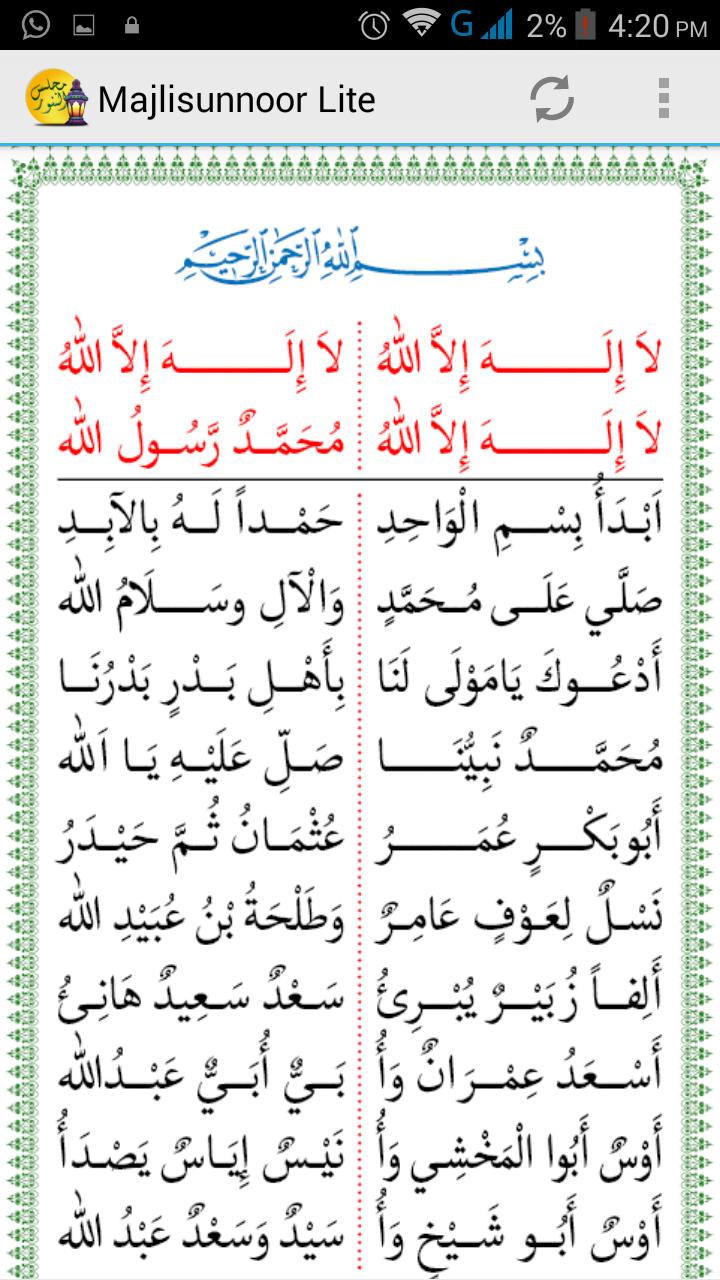 G 2% 4:20 PM
مجلس النور Majlisunnoor Lite
بِسْمِ اللهِ الرَّحْمٰنِ الرَّحِيْمِ
لاَ إِلَـــهَ إِلاَّ اللهُ لاَ إِلَـــهَ إِلاَّ اللهُ
لاَ إِلَـــهَ إِلاَّ اللهُ مُحَمَّـدٌ رَّسُـولُ الله
اَبْـدَأُ بِسْــمِ الْوَاحِدِ حَمْـداً لَـهُ بِالآبِـدِ
صَلَّي عَلَــى مُـحَمَّدٍ وَالْآلِ وسَــلَامُ الله
أَدْعُــوكَ يَامَوْلَى لَنَا بِأَهْــلِ بَـدْرٍ بَدْرُنَـا
مُحَمَّــدٌ نَبِيُّنَــا صَـلِّ عَلَيْـهِ يَـا اَلله
أَبُوبَكْــرٍ عُمَــرُ عُثْمَـانُ ثُـمَّ حَيْـدَرُ
نَسْـلٌ لِعَـوْفٍ عَامِـرٌ وَطَلْحَةُ بْنُ عُبَيْدِ الله
أَلِفـاً زُبَيْـرٌ يُبْـرِئُ سَـعْدٌ سَـعِيدٌ هَانِـئُ
أَسْــعَدُ عِمْـرَانٌ وَأُ بَـيٌّ أُبَـيٌّ عَبْـدُالله
أَوْسٌ أَبُوا الْمَخْشِي وَأُ نَيْـسٌ إِيَـاسٌ يَصْدَأُ
أَوْسٌ أَبُـو شَـيْخٍ وَأُ سَيْدٌ وَسَعْدٌ عَبْدُ الله